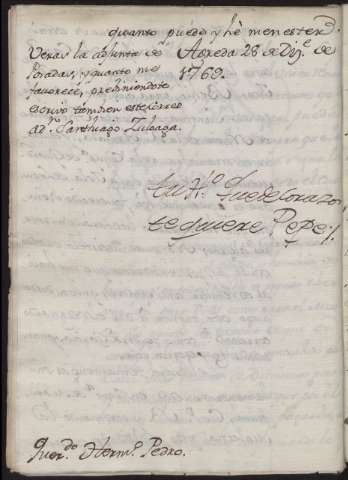 quanto puedo, y hè menester.
Agreda 28 de Diz.e de
1760.
Veras la adjunta de
Posadas, y quanto me
favorece, previniendote
escrivo tambien este correo
a Dn. Santhiago Zuloaga.
tu H.no que de Corazon
te quiere Pepe;.
Quer.do Herm.o Pedro.